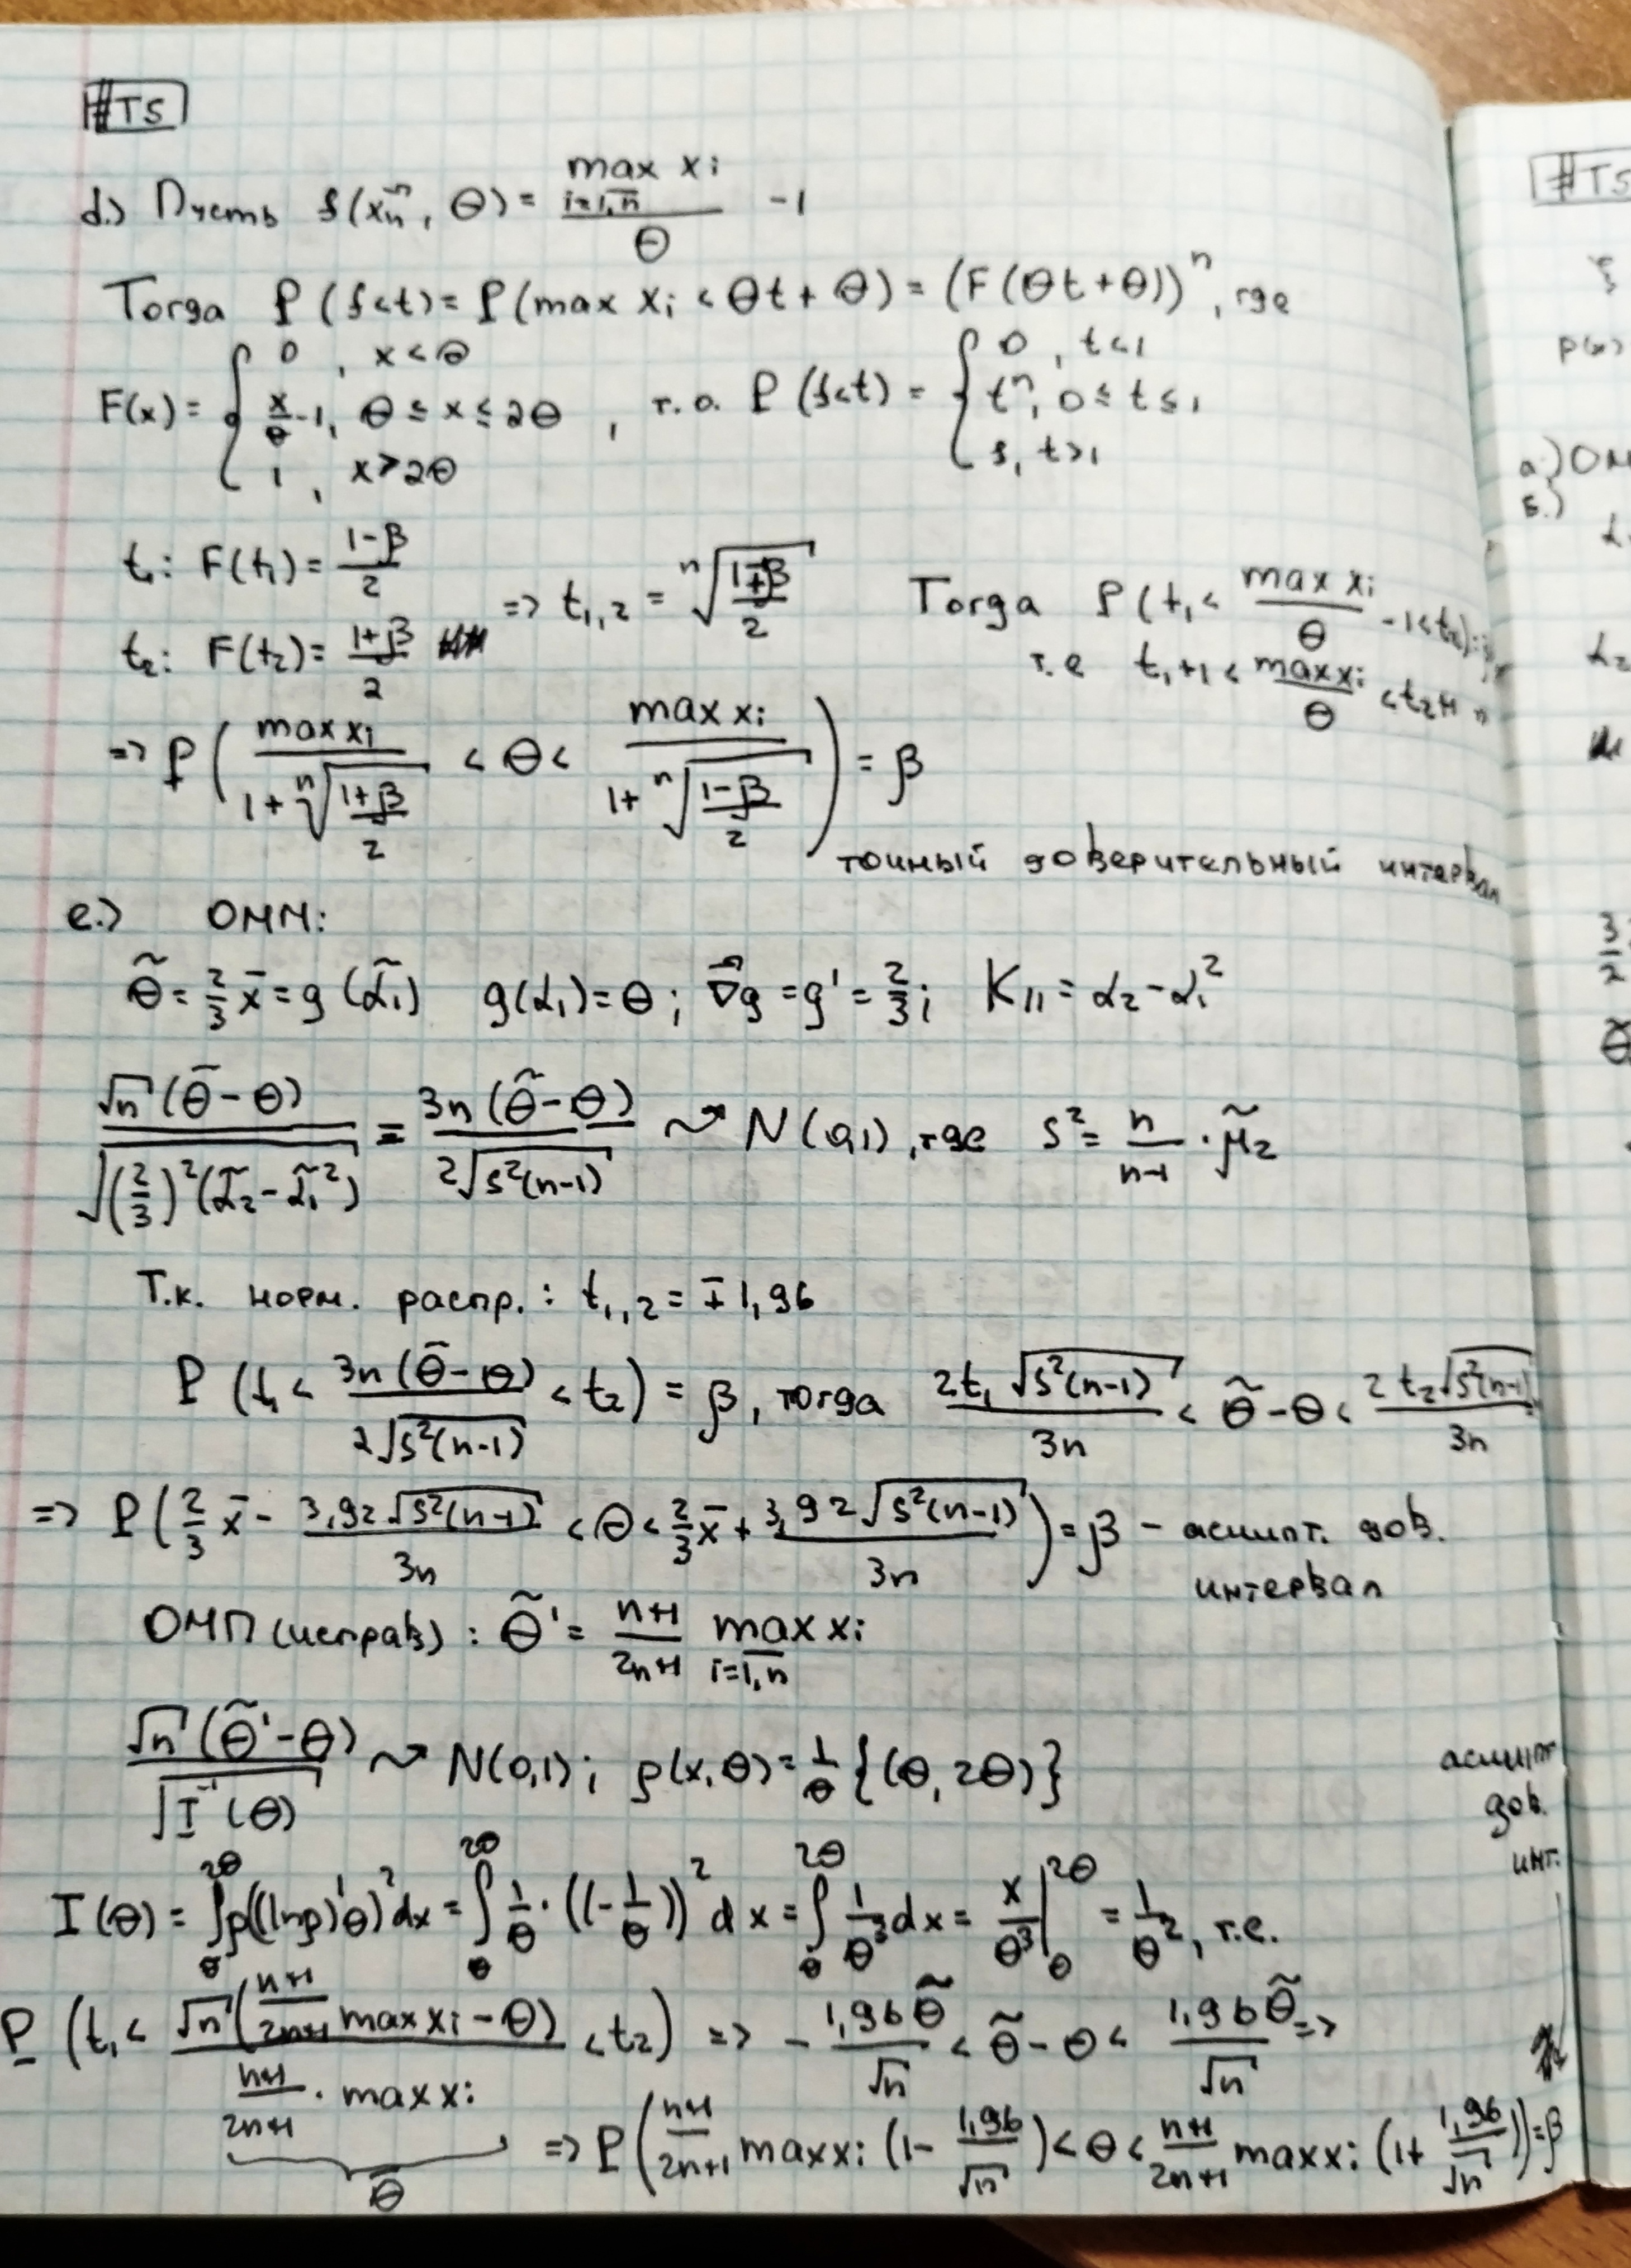 #T5
d.) Пусть f(x⃗n, θ) = max xi i=1,n / θ - 1
Тогда P(f<t) = P(max xi < θt + θ) = (F(θt+θ))^n, где
F(x) = { 0, x<θ; x/θ - 1, θ ≤ x ≤ 2θ; 1, x>2θ , т.о. P(f<t) = { 0, t<1; t^n, 0≤t≤1; 1, t>1
t1: F(t1) = (1-β)/2
t2: F(t2) = (1+β)/2 => t1,2 = ⁿ√((1∓β)/2) Тогда P(t1 < max xi/θ - 1 < t2)
т.е t1+1 < max xi/θ < t2+1
=> P( max xi / (1+ⁿ√((1+β)/2)) < θ < max xi / (1+ⁿ√((1-β)/2)) ) = β
точный доверительный интервал
e.) ОММ:
θ̃ = 2/3 x̄ = g(α̃1) g(α1) = θ; ∇⃗g = g' = 2/3; K11 = α2 - α1²
√n(θ̃-θ) / √((2/3)²(α̃2-α̃1²)) = 3n(θ̃-θ) / 2√(s²(n-1)) ⤳ N(0,1), где s² = n/(n-1) · μ̃2
Т.к. норм. распр.: t1,2 = ∓1,96
P(t1 < 3n(θ̃-θ) / 2√(s²(n-1)) < t2) = β, тогда 2t1√(s²(n-1)) / 3n < θ̃-θ < 2t2√(s²(n-1)) / 3n
=> P( 2/3 x̄ - 3,92√(s²(n-1)) / 3n < θ < 2/3 x̄ + 3,92√(s²(n-1)) / 3n ) = β - асимпт. дов.
интервал
ОМП (исправ): θ̃' = (n+1)/(2n+1) max xi i=1,n
√n(θ̃'-θ) / √(I⁻¹(θ)) ⤳ N(0,1); p(x,θ) = 1/θ {(θ, 2θ)}
асимпт
дов.
инт.
I(θ) = ∫θ^2θ p((ln p)'θ)² dx = ∫θ^2θ 1/θ · ((-1/θ))² dx = ∫θ^2θ 1/θ³ dx = x/θ³ |θ^2θ = 1/θ², т.е.
P(t1 < √n((n+1)/(2n+1) max xi - θ) / ((n+1)/(2n+1) · max xi) < t2) => - 1,96θ̃/√n < θ̃ - θ < 1,96θ̃/√n =>
θ̃
=> P( (n+1)/(2n+1) max xi (1 - 1,96/√n) < θ < (n+1)/(2n+1) max xi (1 + 1,96/√n) ) = β
#T5
p(x)
а.) ОМ
Б.)
3/2